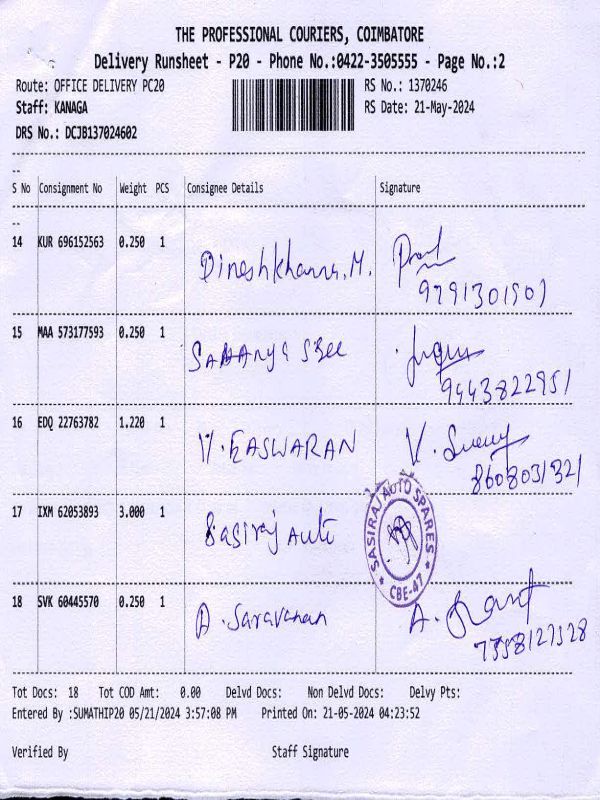 THE PROFESSIONAL COURIERS, COIMBATORE
Delivery Runsheet - P20 - Phone No.:0422-3505555 - Page No.:2
Route: OFFICE DELIVERY PC20 RS No.: 1370246
Staff: KANAGA RS Date: 21-May-2024
DRS No.: DCJB137024602
--
S No Consignment No Weight PCS Consignee Details Signature
--
14 KUR 696152563 0.250 1
Dineshkhanna.M.
15 MAA 573177593 0.250 1
Sree
9443822951
16 EDQ 22763782 1.220 1
V. EASWARAN V.
8608031321
17 IXM 62053893 3.000 1
Sasiraj Auto
SASIRAJ AUTO SPARES
* CBE-47 *
18 SVK 60445570 0.250 1
A. Saravanan A.
Tot Docs: 18 Tot COD Amt: 0.00 Delvd Docs: Non Delvd Docs: Delvy Pts:
Entered By :SUMATHIP20 05/21/2024 3:57:08 PM Printed On: 21-05-2024 04:23:52
Verified By Staff Signature